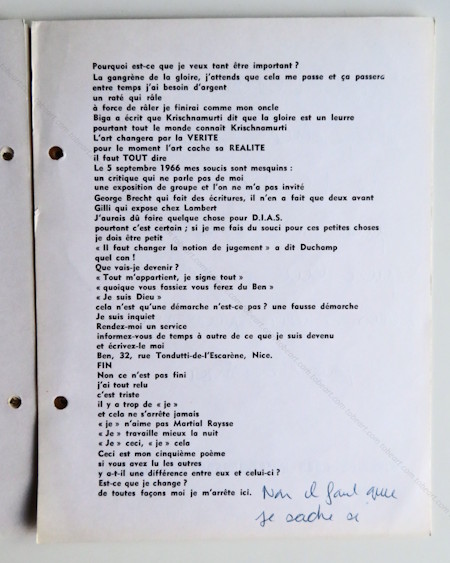 Pourquoi est-ce que je veux tant être important ?
La gangrène de la gloire, j'attends que cela me passe et ça passera
entre temps j'ai besoin d'argent
un raté qui râle
à force de râler je finirai comme mon oncle
Biga a écrit que Krischnamurti dit que la gloire est un leurre
pourtant tout le monde connait Krischnamurti
L'art changera par la VERITE
pour le moment l'art cache sa REALITE
il faut TOUT dire
Le 5 septembre 1966 mes soucis sont mesquins :
un critique qui ne parle pas de moi
une exposition de groupe et l'on ne m'a pas invité
George Brecht qui fait des écritures, il n'en a fait que deux avant
Gilli qui expose chez Lambert
J'aurais dû faire quelque chose pour D.I.A.S.
pourtant c'est certain ; si je me fais du souci pour ces petites choses
je dois être petit
« Il faut changer la notion de jugement » a dit Duchamp
quel con !
Que vais-je devenir ?
« Tout m'appartient, je signe tout »
« quoique vous fassiez vous ferez du Ben »
« Je suis Dieu »
cela n'est qu'une démarche n'est-ce pas ? une fausse démarche
Je suis inquiet
Rendez-moi un service
informez-vous de temps à autre de ce que je suis devenu
et écrivez-le moi
Ben, 32, rue Tondutti-de-l'Escarène, Nice.
FIN
Non ce n'est pas fini
j'ai tout relu
c'est triste
il y a trop de « je »
et cela ne s'arrête jamais
« je » n'aime pas Martial Raysse
« Je » travaille mieux la nuit
« Je » ceci, « je » cela
Ceci est mon cinquième poème
si vous avez lu les autres
y a-t-il une différence entre eux et celui-ci ?
Est-ce que je change ?
de toutes façons moi je m'arrête ici. Non il faut que
je sache si